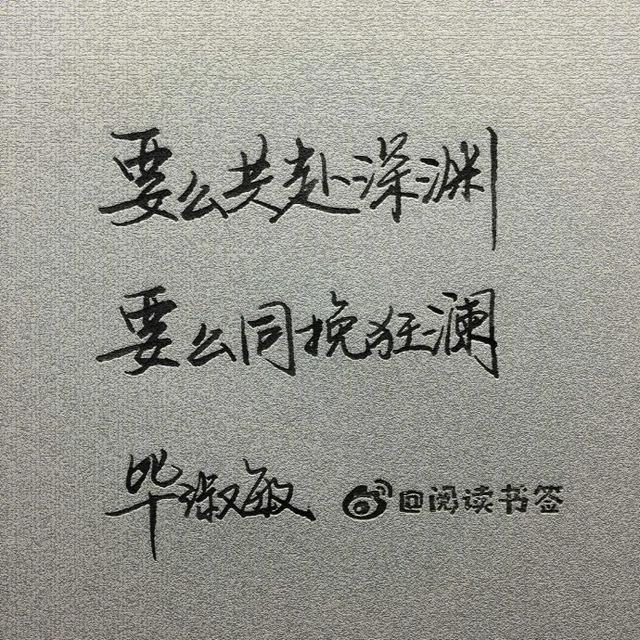 要么共赴深渊
要么同挽狂澜
毕淑敏 @阅读书签